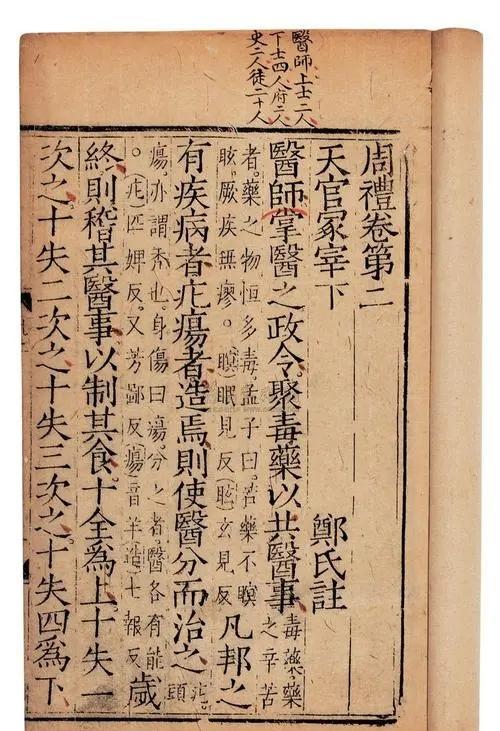 醫師上士二人
下士四人府二人
史二人徒二十人
周禮卷第二
天官冢宰下 鄭氏註
醫師掌醫之政令聚毒藥以共醫事
毒藥藥
之辛苦
者。藥之物恒多毒。孟子曰。若藥不瞑
眩。厥疾無瘳。瞑眠見反眩玄見反
凡邦之
有疾病者疕瘍者造焉則使醫分而治之
疕頭
瘍。亦謂禿也。身傷曰瘍。分之者。醫各有能
。疕匹婢反。又芳鄙反瘍音羊造七報反
歲
終則稽其醫事以制其食十全為上十失一
次之十失二次之十失三次之十失四為下